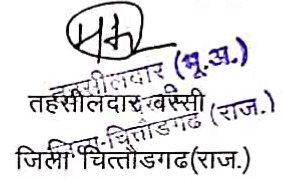 तहसीलदार (भू.अ.)
तहसीलदार बस्सी
जिला-चित्तौडगढ (राज.)
जिला चित्तौडगढ(राज.)